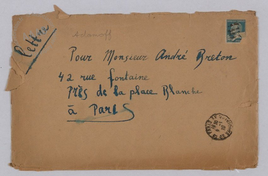 Lettre
Adamoff
Pour Monsieur André Breton
42 rue Fontaine
Près de la place Blanche
à Paris